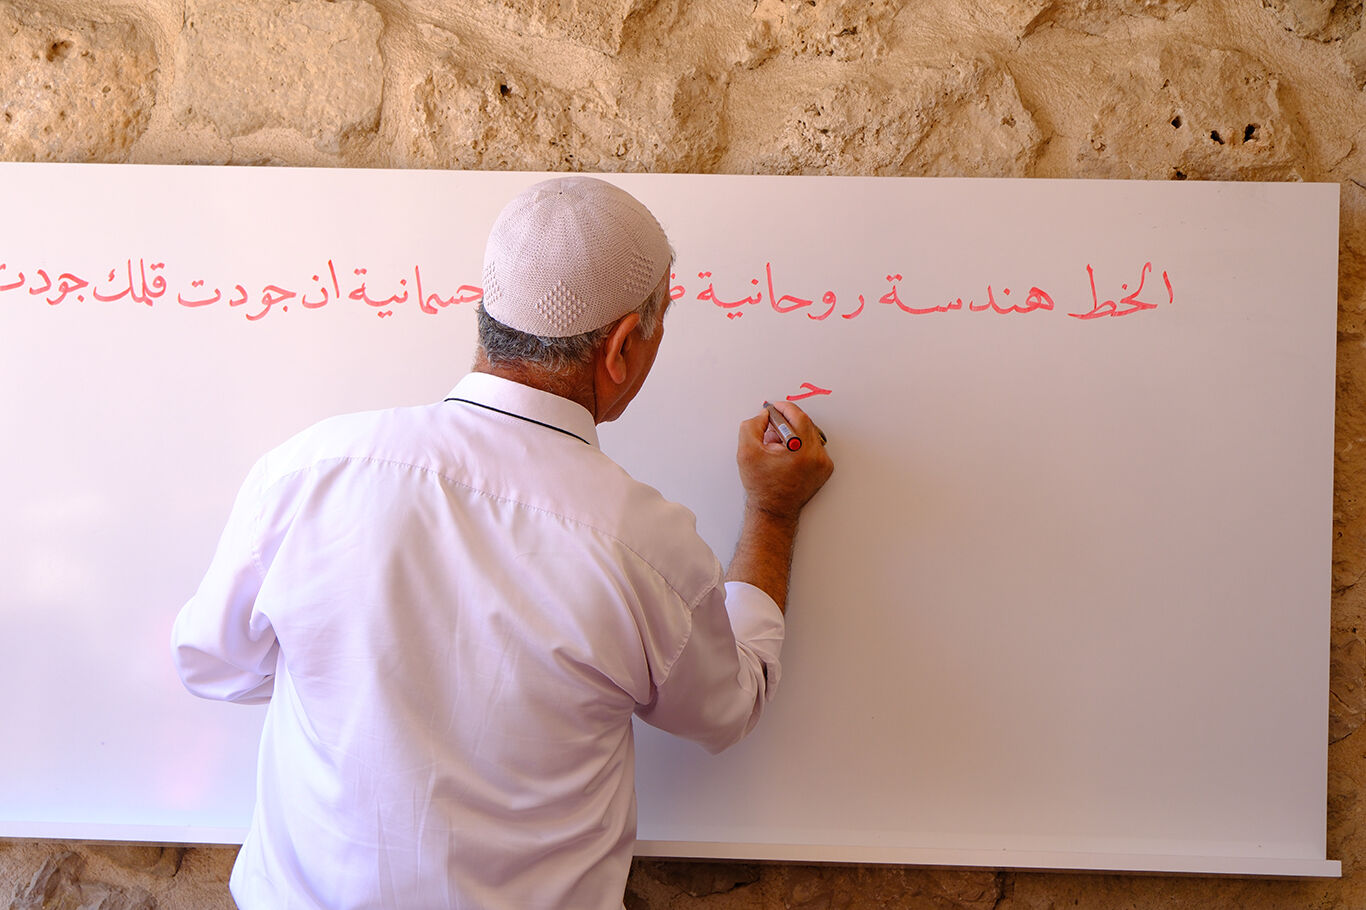 الخط هندسة روحانية جسمانية ان جودت قلمك جودت
حـ